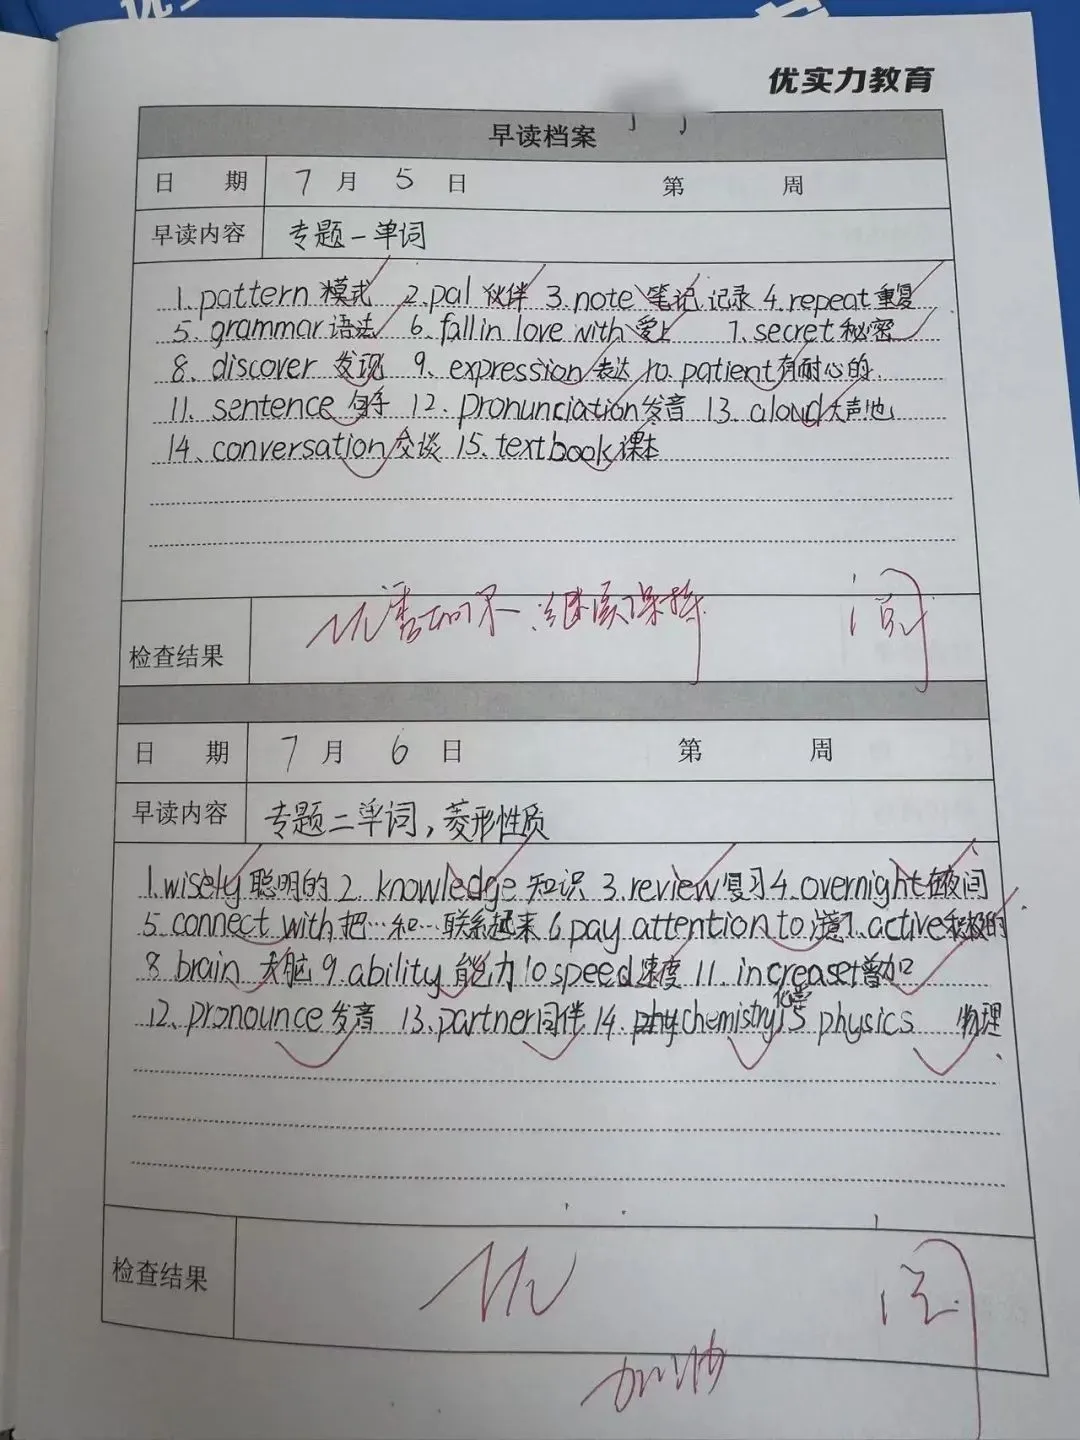 优实力教育
早读档案
日期 7月5日 第 周
早读内容 专题一单词
1.pattern 模式 2.pal 伙伴 3.note 笔记 记录 4.repeat 重复
5.grammar 语法 6.fall in love with 爱上 7.secret 秘密
8、discover 发现 9、expression 表达 10.patient 有耐心的.
11.sentence 句子 12.pronunciation 发音 13.aloud 大声地
14、conversation 交谈 15.textbook 课本
检查结果 优 继续保持 阅
日期 7月6日 第 周
早读内容 专题二单词，菱形性质
1.wisely 聪明的 2.knowledge 知识 3.review 复习 4.overnight 在夜间
5.connect with 把…和…联系起来 6.pay attention to 注意 7.active 积极的
8.brain 大脑 9.ability 能力 10 speed 速度 11.increase 增加
12、pronounce 发音 13.partner 同伴 14.chemistry 化学 15 physics 物理
检查结果 优 阅
加油